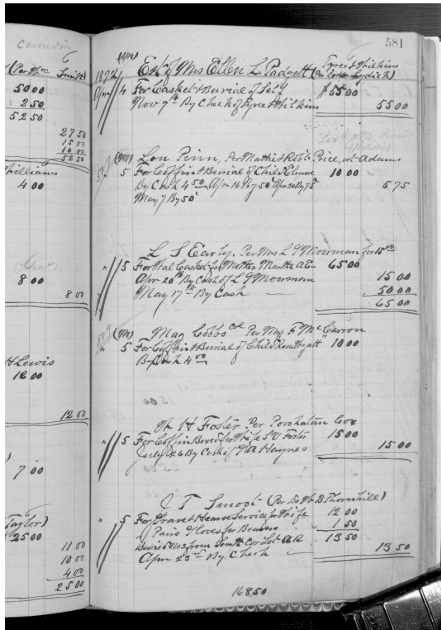 581
Per Wm Smith
50 00
2 50
52 50
27 50
15 00
10 00
52 50
Williams
4 00
8 00
8 00
H Lewis
12 00
12 00
7 00
Taylor)
25 00
11 00
10 00
4 00
25 00
Est of Mrs Ellen L. Padgett
4 For Casket & Burial of Self $55 00
Nov 9th By Check of Tyree & Wilkins 55 00
Lou Penn, Per Mattie & Robt Price, at Adams
5 For Coffin & Burial of Child 10 00
By Cash 4 50 Apr 16 By 50 75 5 75
May 7 By 50
L S Early, Per Mrs L D Mowrman for 15 00
5 For Wal Casket for Mother Martha A E 65 00
Apr 20th By Cash of L D Mowrman 15 00
May 17th By Cash 50 00
65 00
May Cobbs Col Per Mrs F Mc Carron
5 For Coffin & Burial of Child Rosa Wyatt 10 00
By Cash 4 00
W H Foster Per Powhatan Coo
5 For Coffin Box for Wife S V Foster 15 00
26 By Cash of Haynes 15 00
J T Smoot (Per Dr W. B Thornhill)
5 For Grave & Hearse Service for Wife 12 00
Pairs Gloves for Bearers 1 50
13 50
Apr 23rd By Check 13 50
168 50